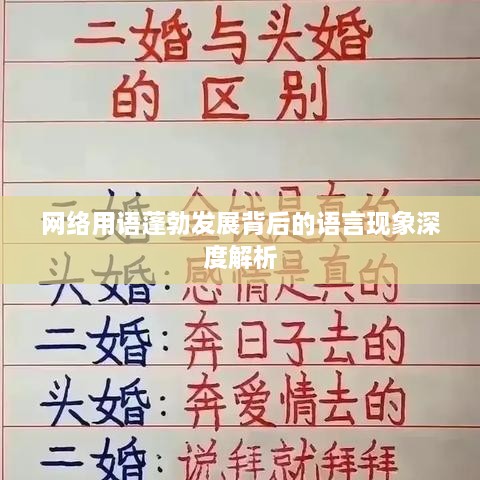 二婚与头婚
的区别
二婚:金钱是真的
网络用语蓬勃发展背后的语言现象深
度解析
头婚:感情是真的
二婚:奔日子去的
头婚:奔爱情去的
二婚:说拜就拜拜